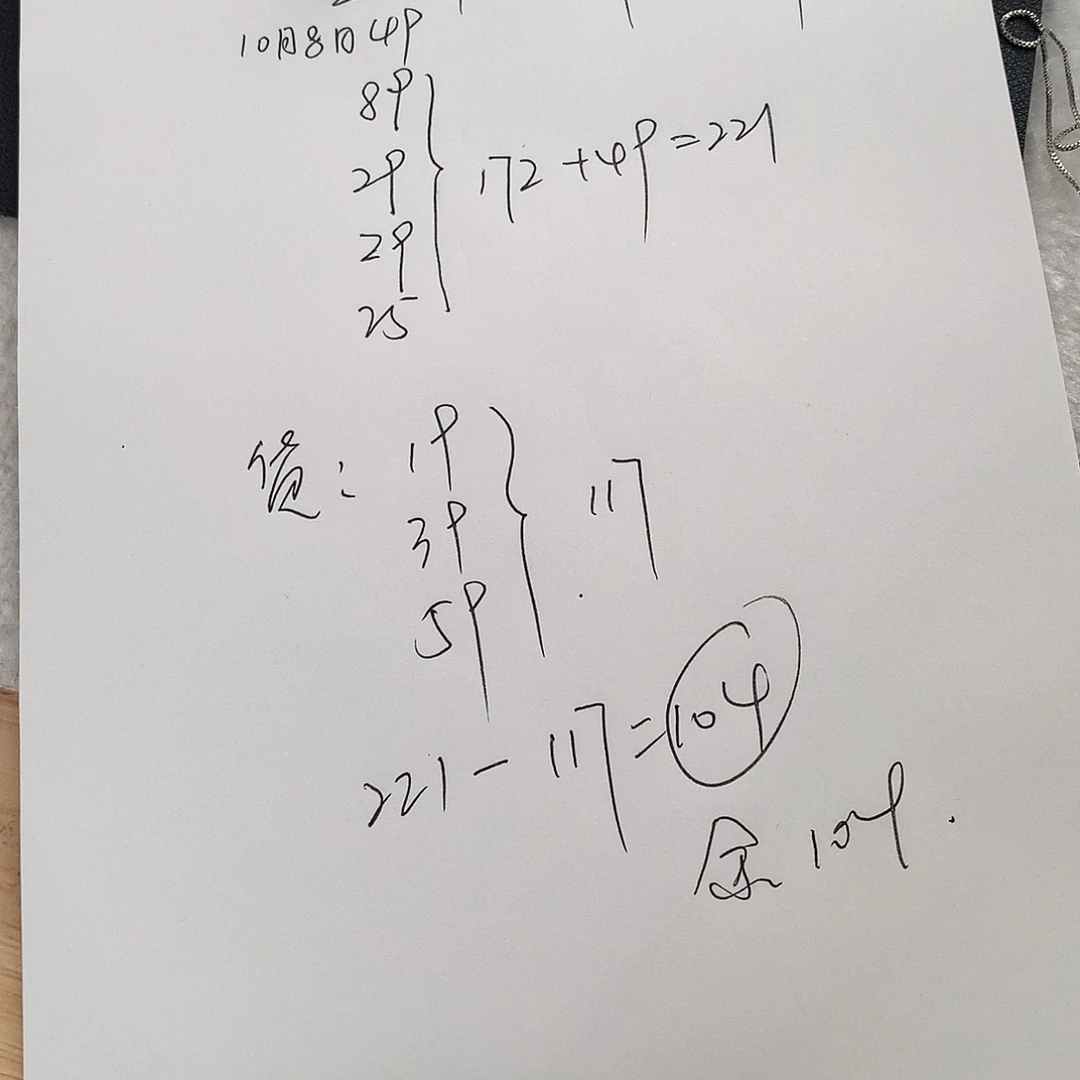 10月8日 49
89
29
29
25
172+49=221
货: 19
39
59
117
221-117=104
余104.